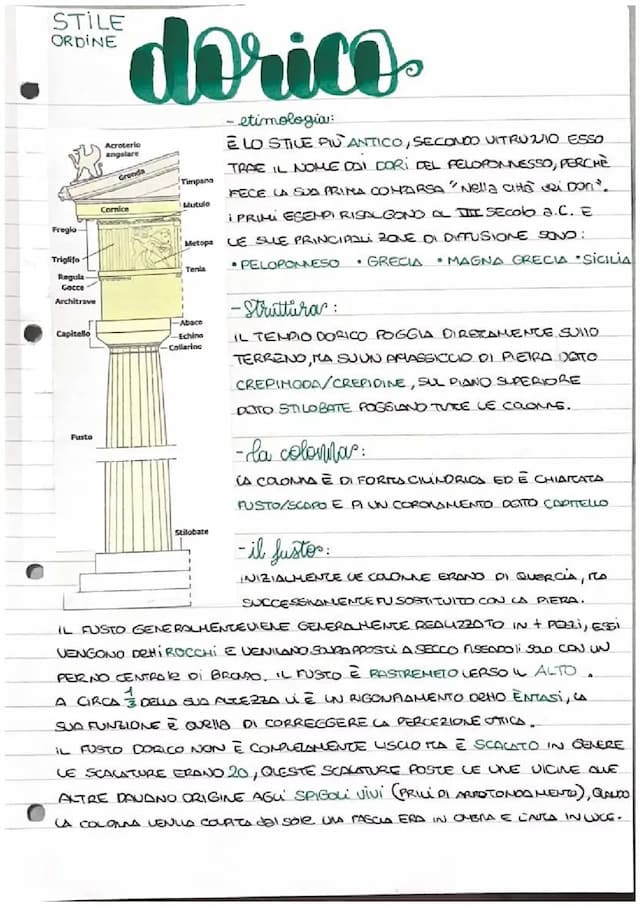 STILE
ORDINE
dorico
- etimologia:
È LO STILE PIÙ ANTICO, SECONDO VITRUVIO ESSO
TRAE IL NOME DAI DORI DEL PELOPONNESO, PERCHÈ
FECE LA SUA PRIMA COMPARSA "NELLA CITTÀ DEI DORI".
I PRIMI ESEMPI RISALGONO AL VII SECOLO a.C. E
LE SUE PRINCIPALI ZONE DI DIFFUSIONE SONO:
• PELOPONNESO • GRECIA • MAGNA GRECIA • SICILIA
Acroterio
angolare
Gronda
Timpano
Cornice
Mutulo
Fregio
Metopa
Triglifo
Tenia
Regula
Gocce
Architrave
Abaco
Capitello
Echino
Collarino
Fusto
Stilobate
- Struttura:
IL TEMPIO DORICO POGGIA DIRETTAMENTE SULLO
TERRENO, MA SU UN DI PIETRA DETTO
CREPIDINE, SUL PIANO SUPERIORE
DETTO STILOBATE POGGIANO TUTTE LE COLONNE.
- la colonna:
LA COLONNA È DI FORMA CILINDRICA ED È CHIAMATA
FUSTO/SCAPO E DI UN CORONAMENTO DETTO CAPITELLO
- il fusto:
INIZIALMENTE LE COLONNE ERANO DI QUERCIA, MA
SUCCESSIVAMENTE FU SOSTITUITO CON LA PIETRA.
IL FUSTO GENERALMENTE VIENE GENERALMENTE REALIZZATO IN + PEZZI, ESSI
VENGONO DETTI ROCCHI E VENIVANO SOVRAPPOSTI A SECCO FISSANDOLI SOLO CON UN
PERNO CENTRALE DI BRONZO. IL FUSTO È RASTREMATO VERSO IL ALTO.
A CIRCA 1/3 DELLA SUA ALTEZZA VI È UN RIGONFIAMENTO DETTO ÈNTASI, LA
SUA FUNZIONE È QUELLA DI CORREGGERE LA PERCEZIONE OTTICA.
IL FUSTO DORICO NON È COMPLETAMENTE LISCIO MA È SCALATO IN GENERE
LE SCALATURE ERANO 20, QUESTE SCALATURE POSTE LE UNE VICINE ALLE
ALTRE DAVANO ORIGINE AGLI SPIGOLI VIVI (PRIVI DI ARROTONDAMENTO), QUANDO
LA COLONNA VENIVA COLPITA DAL SOLE UNA FASCIA ERA IN OMBRA E L'ALTRA IN LUCE.